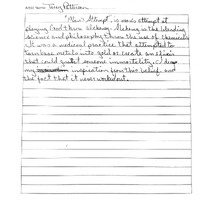 Artist Name: Terry Patterson
"Man's Attempt" is man's attempt at
playing God thorn alchemy. Alchemy is the blending
science and philosophy threw the use of chemicals
It was a medieval practice that attempted to
turn base metals into gold or create an elixir
that could grant someone immortality. I drew
my inspiration from this belief and
the fact that it never worked out.